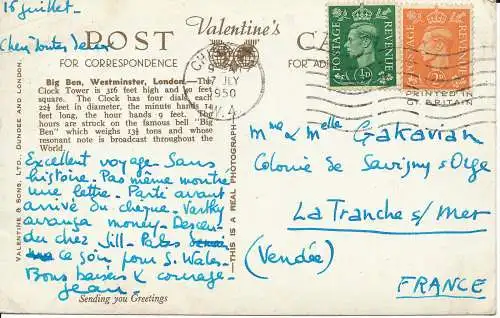 15 juillet.
Chers toutes deux
Valentine's
POST CA
FOR CORRESPONDENCE FOR AD
Big Ben, Westminster, London.—The
Clock Tower is 316 feet high and 40 feet
square. The Clock has four dials, each
22½ feet in diameter, the minute hands 14
feet long, the hour hands 9 feet. The
hours are struck on the famous bell "Big
Ben" which weighs 13½ tons and whose
resonant note is broadcast throughout the
World.
Excellent voyage. Sans
histoire. Pas même montré
une lettre. Parti avant
arrivé du chèque.
avança money. Descen-
du chez Jill.
ce soir pour S. Wales.
Bons baisers & courage.
Jean.
Sending you Greetings
VALENTINE & SONS, LTD., DUNDEE AND LONDON.
—THIS IS A REAL PHOTOGRAPH—
17 JLY
1950
W.4
POSTAGE REVENUE
½D
POSTAGE REVENUE
PRINTED IN
GT. BRITAIN
Mme & Melle Gakavian
Colonie de Savigny s/Orge
LA TRANCHE s/ MER
(Vendée)
FRANCE